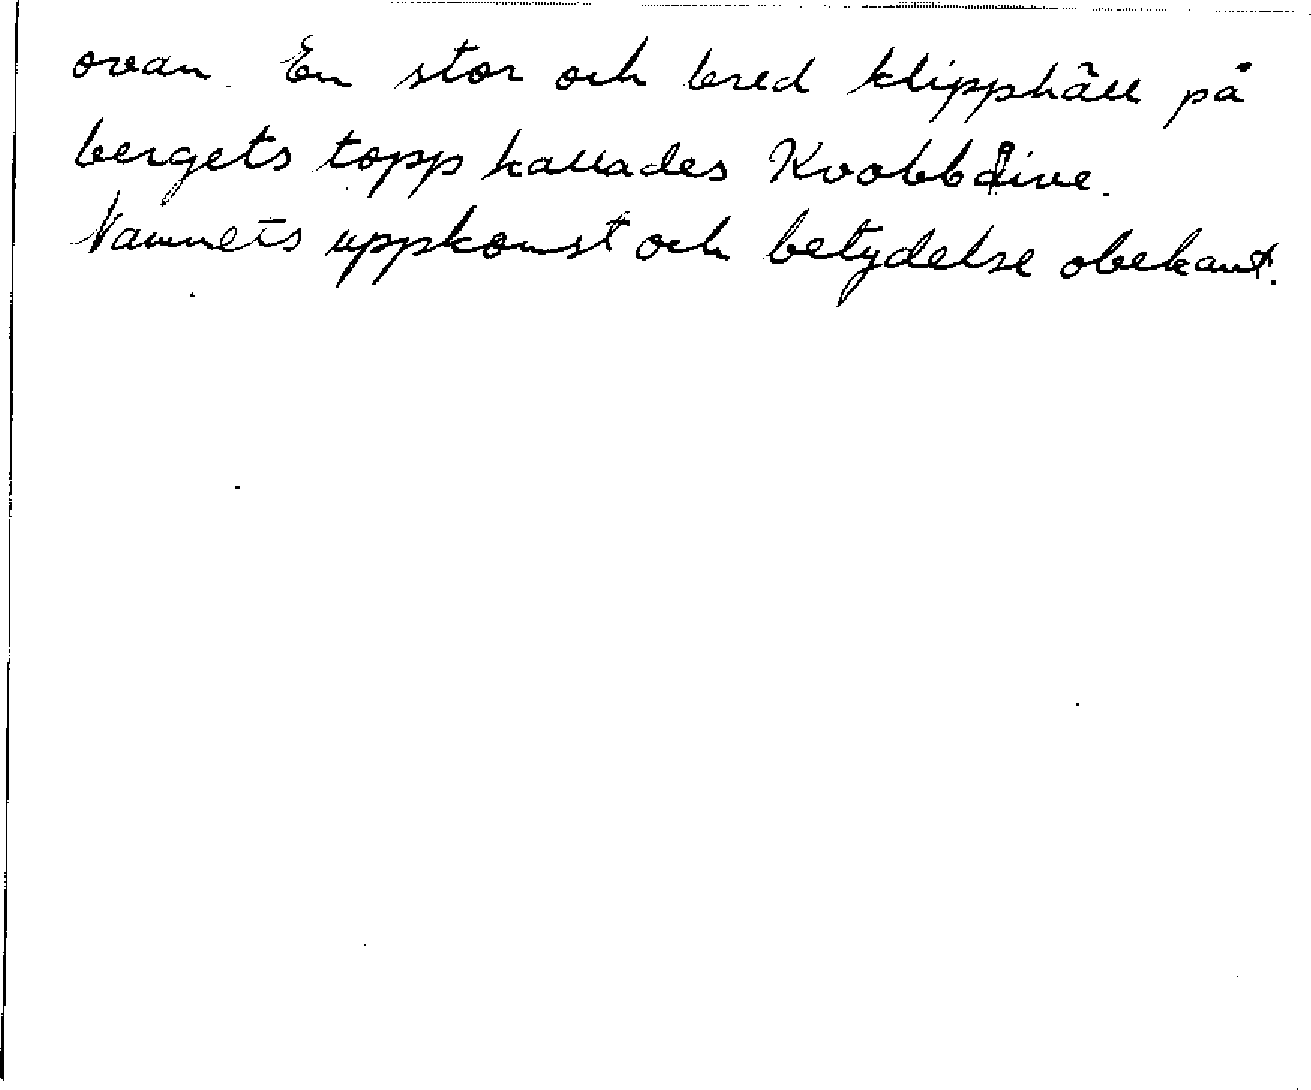 ovan. En stor och bred klipphäll på
bergets topp kallades
Namnets uppkomst och betydelse obekant.